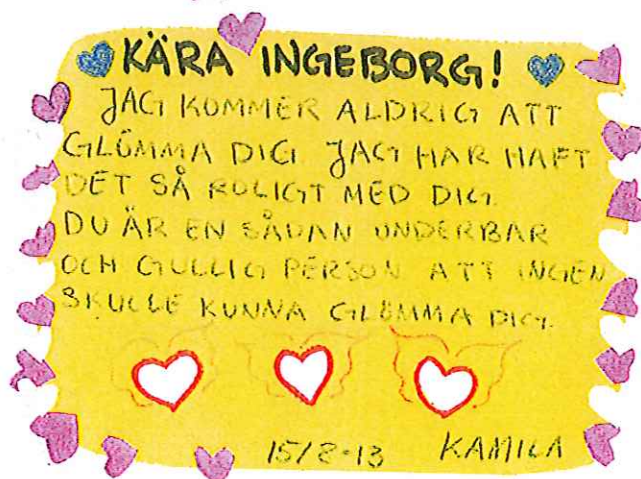 KÄRA INGEBORG!
JAG KOMMER ALDRIG ATT
GLÖMMA DIG JAG HAR HAFT
DET SÅ ROLIGT MED DIG.
DU ÄR EN SÅDAN UNDERBAR
OCH GULLIG PERSON ATT INGEN
SKULLE KUNNA GLÖMMA DIG.
15/8-13 KAMILA